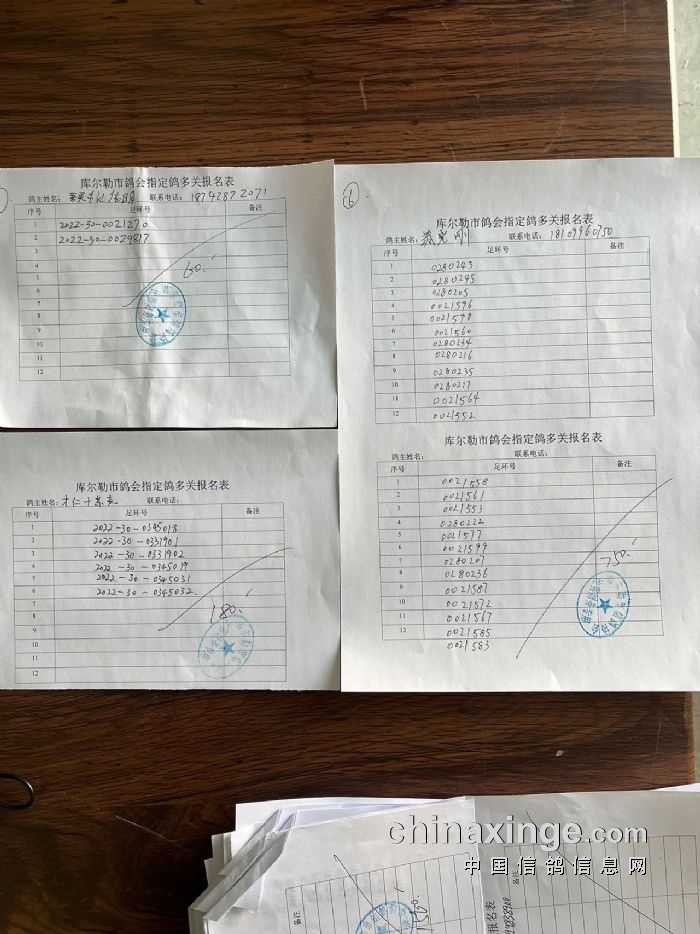 库尔勒市鸽会指定鸽多关报名表
鸽主姓名: 联系电话: 18742872071
序号 足环号 备注
1 2022-30-0021270
2 2022-30-0029817
3
4
5
6
7
8
9
10
11
12
60.
库尔勒市鸽会指定鸽多关报名表
鸽主姓名: 才仁十苏克 联系电话:
序号 足环号 备注
1 2022-30-0345018
2 2022-30-0331901
3 2022-30-0331902
4 2022-30-0345019
5 2022-30-0345031
6 2022-30-0345032
7
8
9
10
11
12
180.
6
库尔勒市鸽会指定鸽多关报名表
鸽主姓名: 刚 联系电话: 18109960750
序号 足环号 备注
1 0280243
2 0280245
3 0280205
4 0021596
5 0021598
6 0021560
7 0280234
8 0280216
9 0280235
10 0280217
11 0021564
12 0021552
库尔勒市鸽会指定鸽多关报名表
鸽主姓名: 联系电话:
序号 足环号 备注
1 0021558
2 0021561
3 0021553
4 0280222
5 0021577
6 0021599
7 0280207
8 0280236
9 0021587
10 0021572
11 0021567
12 0021585
0021583
750.
备注
备注
报名表
chinaxinge.com
中国信鸽信息网